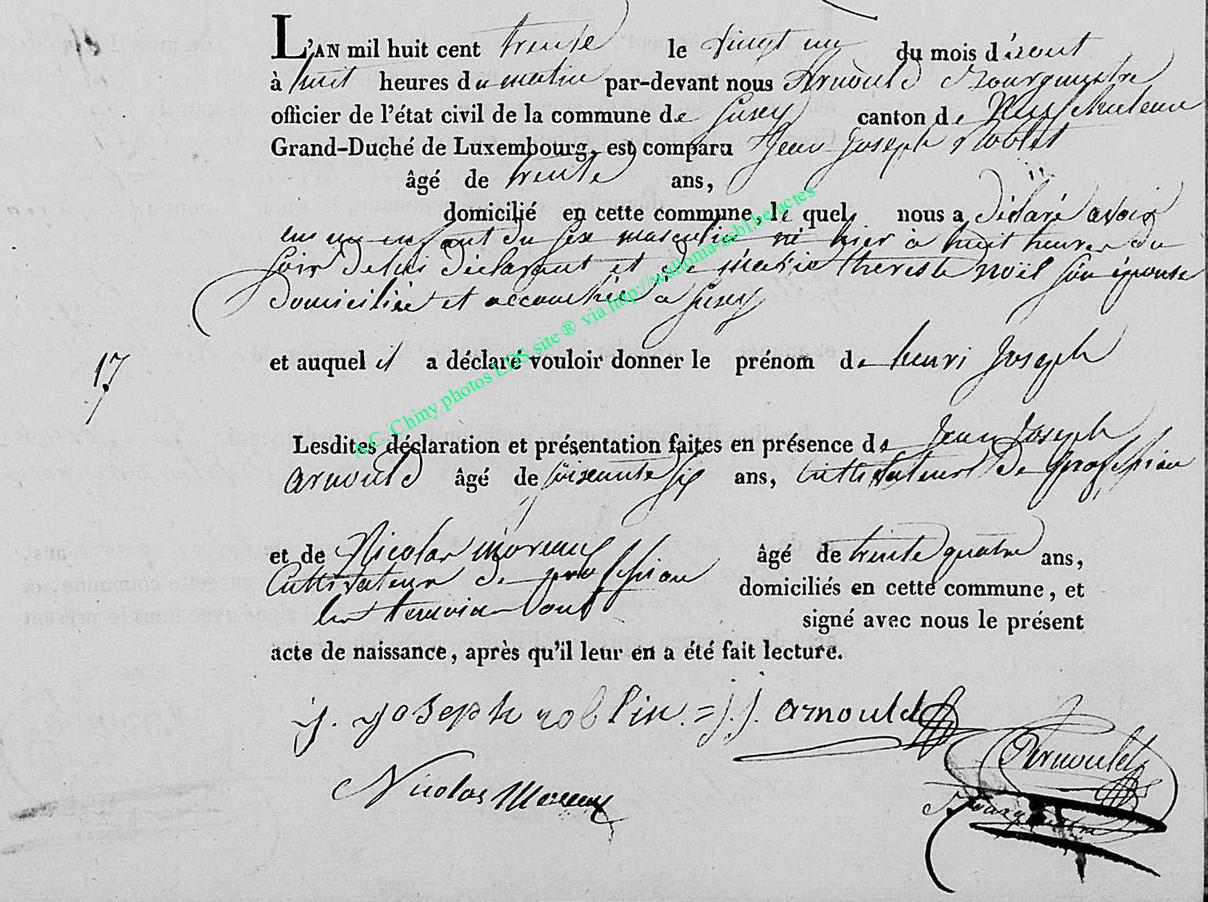 L'AN mil huit cent trente le vingt un du mois d'aout
à huit heures du matin par-devant nous Arnould Bourgmestre
officier de l'état civil de la commune de Jusey canton de Neufchateau
Grand-Duché de Luxembourg, est comparu Jean Joseph Noblet
âgé de trente ans,
domicilié en cette commune, le quel nous a déclaré avoir
eu un enfant du sex masculin né hier à huit heures du
soir de lui déclarant et de marie therese noël son épouse
domiciliée et accouchée à Jusey
17
et auquel il a déclaré vouloir donner le prénom de henri Joseph
Lesdites déclaration et présentation faites en présence de Jean Joseph
arnould âgé de soixante six ans, cultivateur de profession
et de Nicolas moreaux âgé de trente quatre ans,
Cultivateur de profession domiciliés en cette commune, et
les temoins ont signé avec nous le présent
acte de naissance, après qu'il leur en a été fait lecture.
j. joseph noblin = j. j. arnould
Arnould
Nicolas Moreaux
Bourgmestre
A.C. Chiny photos LDS site ® via http://wallonia-asbl.be/actes